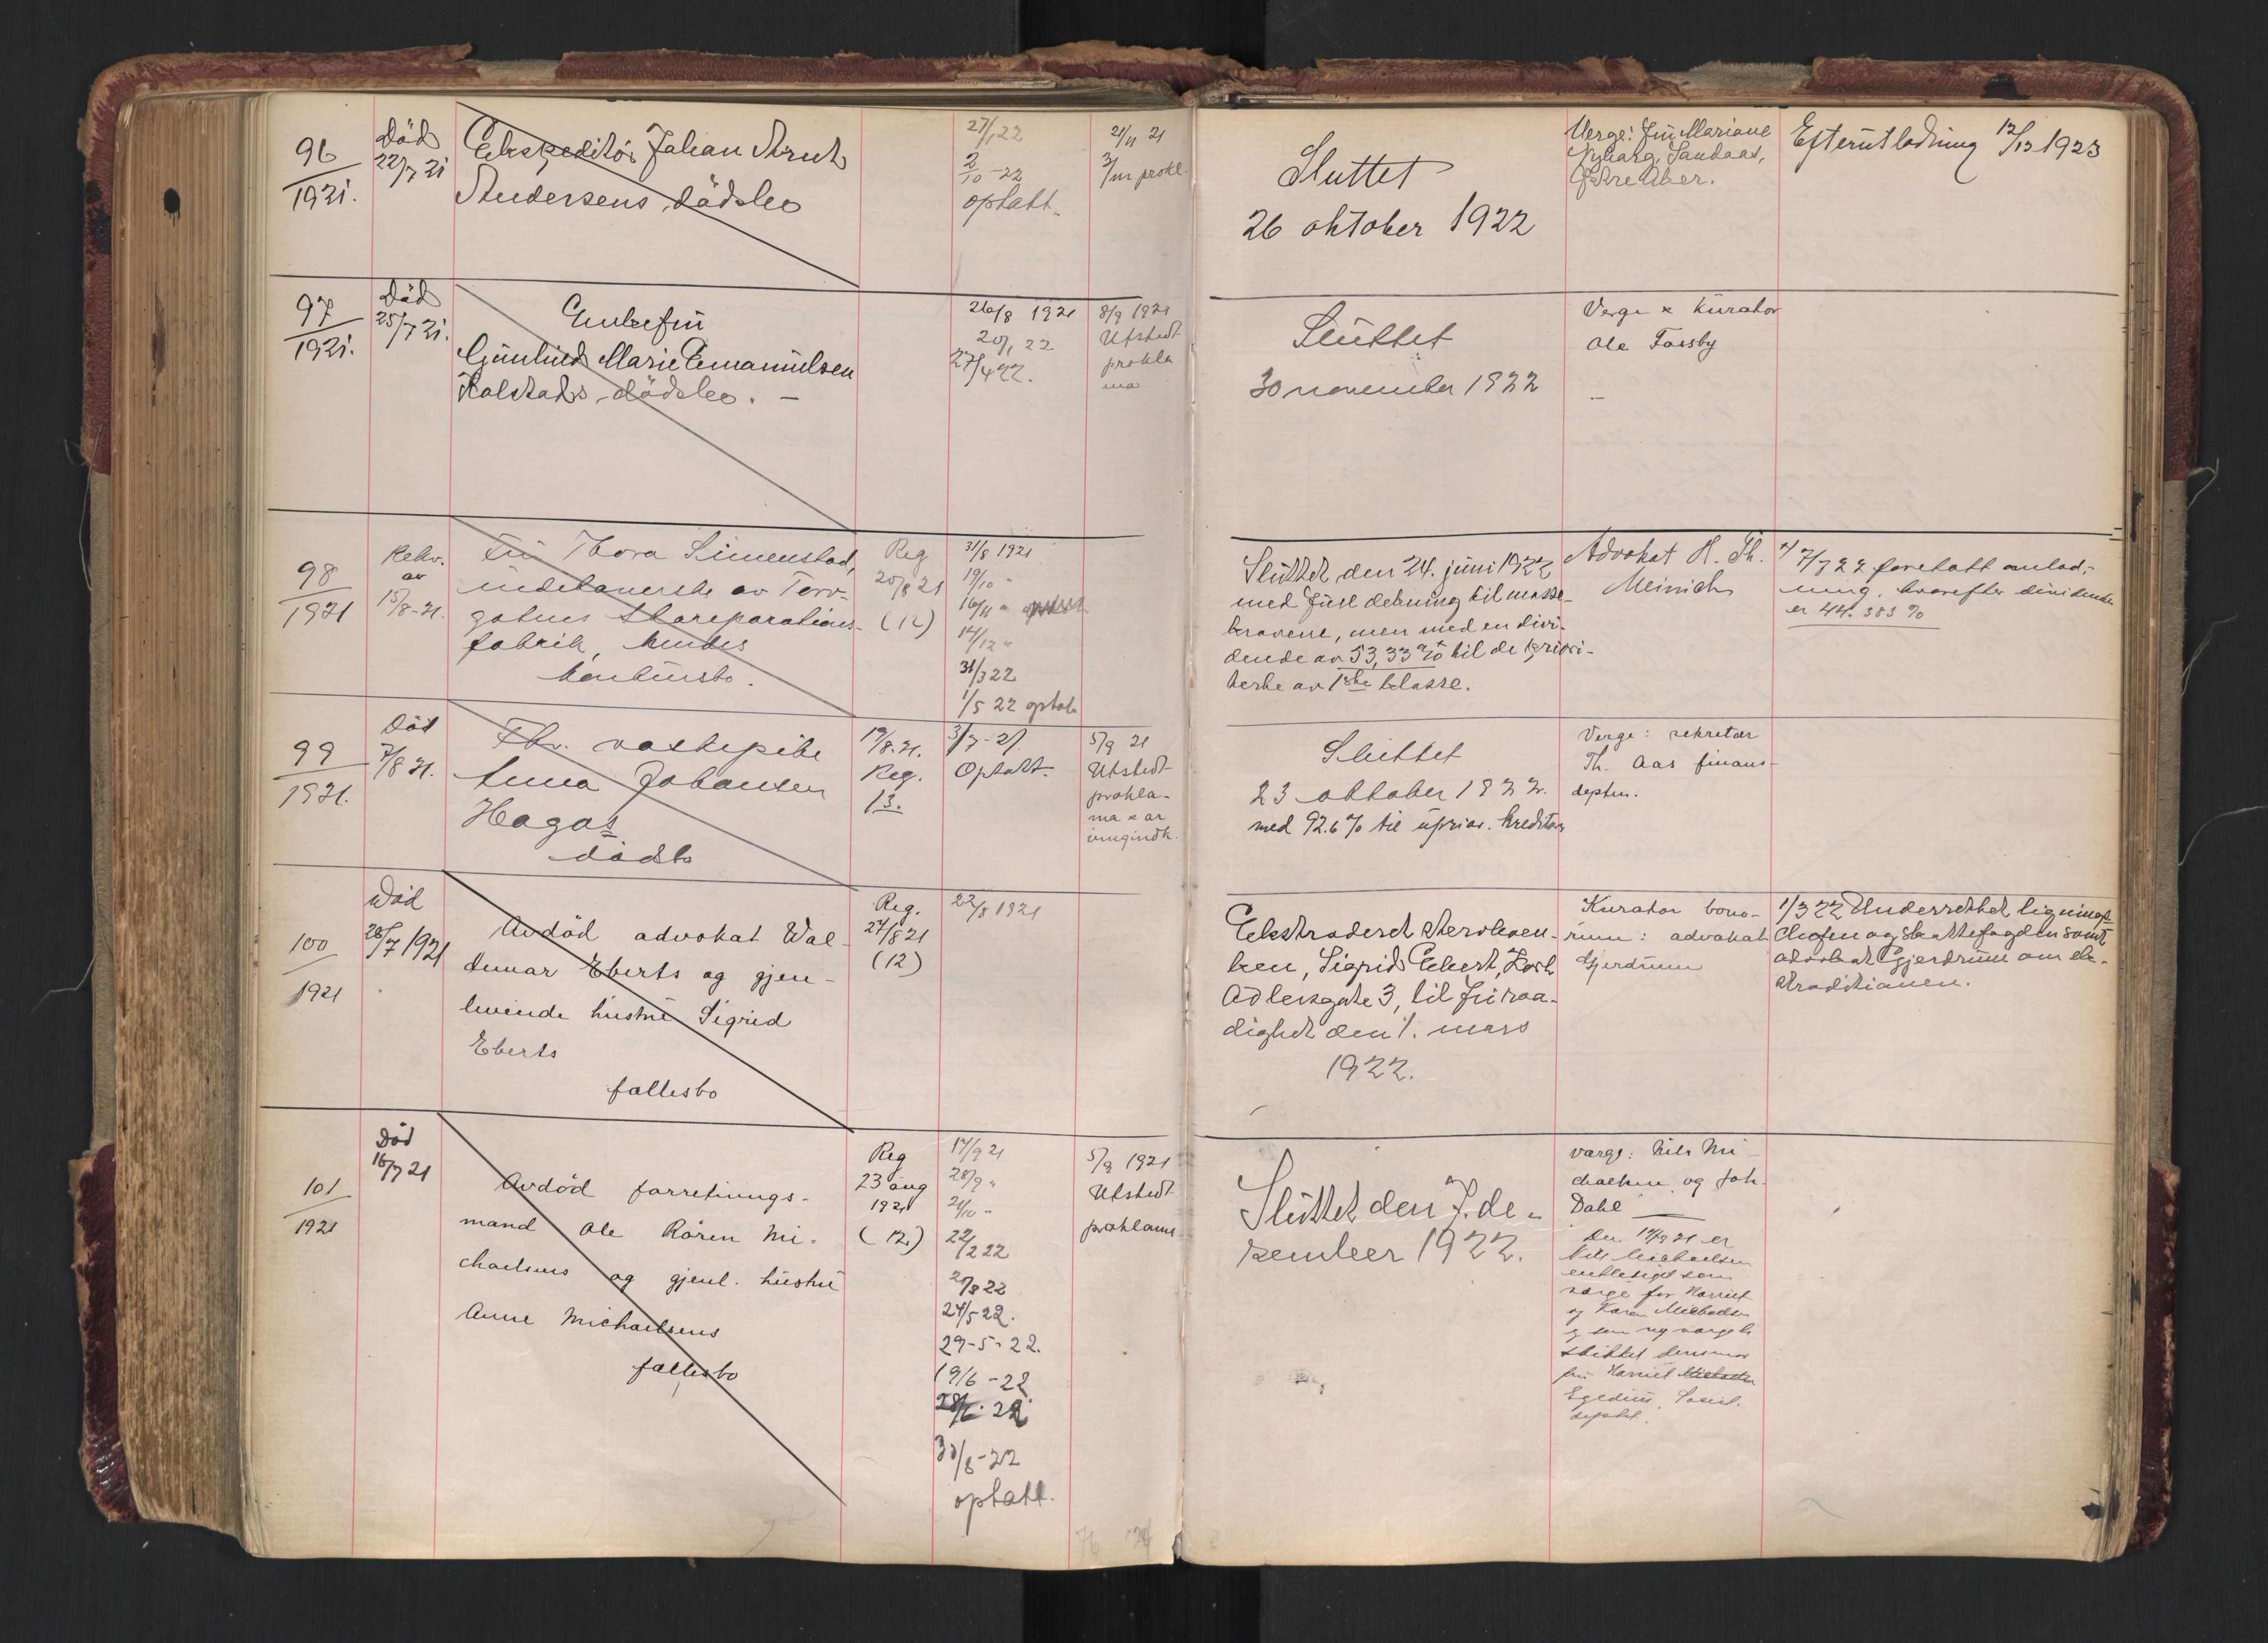 96
1921.
Död
22/7 21
Ekspeditör Johan Arnt
Andersens dödsbo
27/1 22
2/10-22
optatt.
21/11 21
prokl.
Sluttet
26 oktober 1922
Verge: Fru Mariane
Nyborg, Sandaas,
Östre Aker.
Efterutlodning 12/12 1923
97
1921.
Död
25/7 21.
Enkefru
Gunhild Marie Emanuelsen
Kolstads dödsbo. -
26/8 1921
20/1 22
27/4 22.
8/9 1921
Utstedt
prokla
ma
Sluttet
30 november 1922
Verge & Kurator
Ole Fossby
98
1921
Rekv.
av
15/8-21.
Fru Thora Simenstad,
indehaverske av Torv-
gatens skoreparations-
fabrik, hendes
konkursbo.
Reg
20/8 21
(12)
31/8 1921
19/10 "
16/11 "
14/12 "
31/3 22
1/5 22 optat
Sluttet den 24. juni 1922
med fuld dekning til masse-
kravene, men med en divi-
dende av 53,33 % til de priori-
terte av 1ste klasse.
Advokat H. Th.
Meinich
7/7 22 foretatt omlod-
ning, hvorefter dividende
er 44.383 %
99
1921.
Död
7/8 21.
Fhv. vaskepike
Anna Johansen
Hagas
dödsbo
19/8.21.
Reg.
13.
3/9-21
Optatt.
5/9 21
Utstedt
prokla-
ma & av
inngindk.
Sluttet
23 oktober 1922.
med 92.6 % til uprior. kreditor
Verge: sekretær
Th. Aas finans-
deptm.
100
1921
Död
28/7 1921
Avdöd advokat Wal-
demar Eberts og gjen-
levende hustru Sigrid
Eberts
fællesbo
Reg.
27/8 21
(12)
22/8 1921
Ekstradert sterboen-
ken, Sigrid Ebert, Kort
Adlersgate 3, til friraa-
dighet den 1. mars
1922.
Kurator bono-
rum: advokat
Gjerdrum
1/3 22 Underrettet lignings-
chefen og skattefogden samt
advokat Gjerdrum om ek-
straditionen.
101
1921
Död
16/7 21
Avdöd forretnings-
mand Ole Rören Mi-
chaelsens og gjenl. hustru
Anne Michaelsens
fællesbo
Reg
23 aug
1921
(12)
17/9 21
28/9 "
21/10 "
22/2 22
24/5 22.
29-5-22.
19/6-22
optatt.
5/9 1921
Utstedt
proklama
Sluttet den 7. de-
zember 1922.
værge: Nils Mi
chaelsen og Joh.
Dahl
Den 14/9 21 er
Nils Michaelsen
entlediget som
værge for Harriet
og Karen Michaelsen
og som ny værge b.
skikket
fru Harriet Michaelsen
Egedius, Social.
deptet.